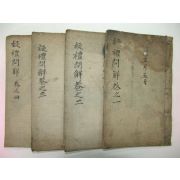 疑禮問解 卷之一
疑禮問解卷之二
疑禮問解卷之三
疑禮問解 卷之四